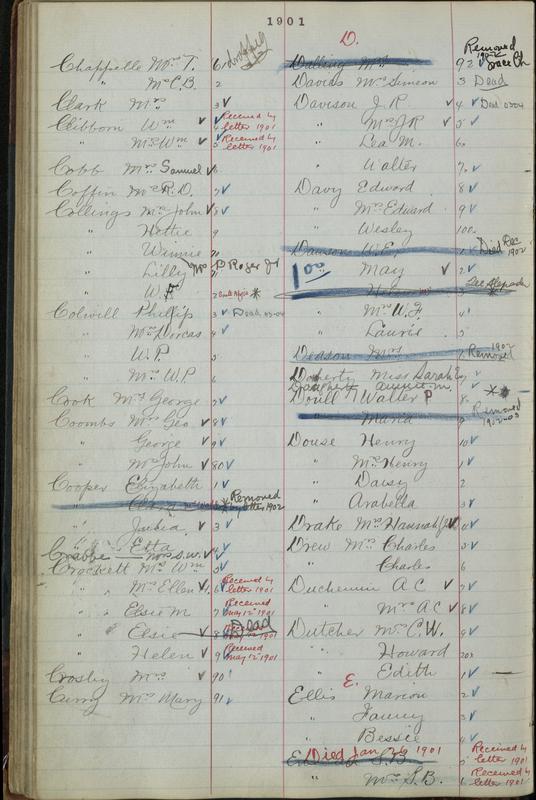 1901
Chappelle Mrs T. 61
" Mrs C.B. 2
Clark Mrs 3
Clibborn Wm 4 Received by letter 1901
" Mrs Wm 5 Received by letter 1901
Cobb Mrs Samuel 6
Coffin Mrs R.D. 7
Collings Mrs John 8
" Hettie 9
" Winnie 70
" Lilly Mrs B Roger Jr 1
" W
Colwill Phillip 3 Dead 03-04
" Mrs Dorcas 4
" W.P. 5
" Mrs W.P. 6
Cook Mrs George 7
Coombs Mrs Geo 8
" George 9
" Mrs John 80
Cooper Elizabeth 1
Removed by letter 1902
" Julia 3
" Etta 4
Crabbe Mrs S.W.
Crockett Mrs Wm 5
" Mrs Ellen 6 Received by letter 1901
" Elsie M 7 Received may 12th 1901
" Elsie 8 Dead Received may 12th 1901
" Helen 9 Received may 12th 1901
Crosby Mrs 90
Curry Mrs Mary 91
D.
Dalling Mrs 92 Removed 1902 Grace Ch
Davids Mrs Simeon 3 Dead
Davison J.R. 4 Dead 03-04
" Mrs J R 5
" Lea M. 6
" Walter 7
Davy Edward 8
" Mrs Edward 9
" Wesley 100
Dawson W.E. 1 Died Dec 1902
" May 2
" Mrs W.F. 4
" Laurie 5
Deason Mrs 6 1902 Removed
Doherty Miss Sarah 7
Dougherty Annie M.
Doull Walter P 8
" Maria 9 Removed 1902-03
Douse Henry 10
" Mrs Henry 1
" Daisy 2
" Arabella 3
Drake Mrs Hannah 4
Drew Mrs Charles 5
" Charles 6
Duchemin A C 7
" Mrs A C 8
Dutcher Mrs C.W. 9
" Howard 20
" Edith 1
E.
Ellis Marion 2
" Fanny 3
" Bessie 4
Died Jan 26 1901
S.B. 5 Received by letter 1901
" Mrs S.B. Received by letter 1901